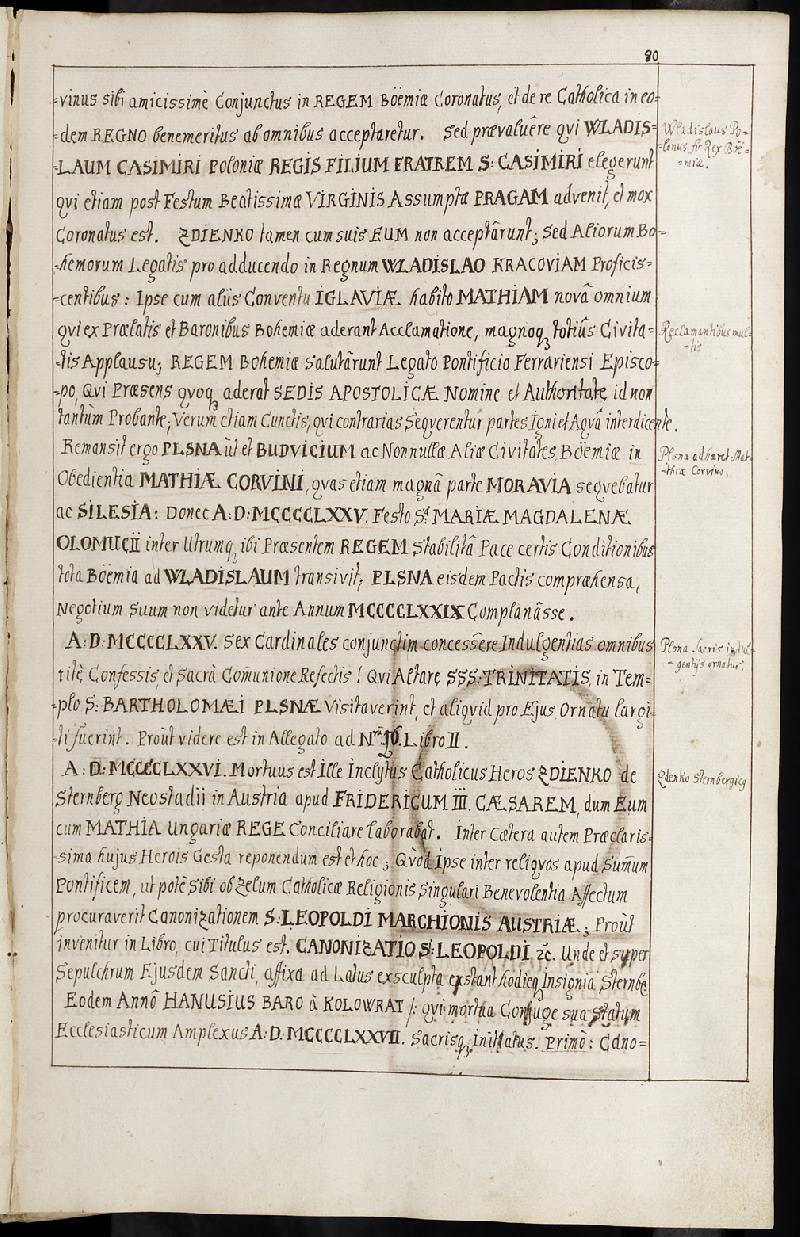 80
-vinus sibi amicissimè Conjunctus in REGEM Böemiæ Coronatus, et de re Catholica in eo-
-dem REGNO benemeritus ab omnibus acceptaretur. Sed prævaluêre qvi WLADIS-
-LAUM CASIMIRI Poloniæ REGIS FILIUM FRATREM S: CASIMIRI elegerunt
qvi etiam post Festum Beatissimæ VIRGINIS Assumptæ PRAGAM advenit, et mox
Coronatus est. ZDIENKO tamen cum suis EUM non acceptârunt; Sed Aliorum Bo-
-hemorum Legatis pro adducendo in Regnum WLADISLAO KRACOVIAM Proficis-
-centibus: Ipse cum aliis Conventu IGLAVIÆ habito MATHIAM novâ omnium
qvi ex Prælatis et Baronibus Bohemiæ aderant Acclamatione, magnoq3 totiûs Civita-
-tis Applausu; REGEM Bohemiæ Salutârunt Legato Pontificio Ferrariensi Episco-
-po, Qvi Præsens qvoq3 aderat SEDIS APOSTOLICÆ Nomine et Authoritate id non
tantùm Probante; Verùm etiam Cunctis, qvi contrarias Seqverentur partes Igni et Aqvâ interdicente.
Remansit ergo PLSNA ùt et BUDVICIUM ac Nonnullæ Aliæ Civitates Böemiæ in
Obedientia MATHIÆ CORVINI, qvas etiam magnâ parte MORAVIA seqvebatur
ac SILESIA: Donec A:D:MCCCCLXXV. Festo Stæ MARIÆ MAGDALENÆ
OLOMUCII inter Utrumq3 ibi Præsentem REGEM Stabilitâ Pace certis Conditionibus
tota Böemia ad WLADISLAUM transivit; PLSNA eisdem Pactis compræhensa,
Negotium Suum non videtur ante Annum MCCCCLXXIX Complanâsse.
A:D:MCCCCLXXV. Sex Cardinales conjunctim concessêre Indulgentias omnibus
ritè Confessis, et Sacrâ Com̄unione Refectis! Qvi Altare SSS:TRINITATIS, in Tem-
-plo S: BARTHOLOMÆI PLSNÆ Visitaverint, et aliqvid pro Ejus Ornatu largi-
-ti fuerint. Proùt videre est in Allegato ad Nrm Libro II.
A:D:MCCCCLXXVI. Mortuus est Ille Inclytus Catholicus Heros ZDIENKO de
Sternberg Neostadii in Austria apud FRIDERICUM III. CÆSAREM, dum Eum
cum MATHIA Ungariæ REGE Conciliare laborabat. Inter Cætera autem Præclaris-
-sima hujus Herois Gesta reponendum est et hoc; Qvòd Ipse inter reliqvos apud Sum̄um
Pontificem, ut potè Sibi ob Zelum Catholicæ Religionis Singulari Benevolentiæ Affectum
procuraverit Canonizationem S:LEOPOLDI MARCHIONIS AUSTRIÆ; Proùt
invenitur in Libro, cui Titulus est. CANONIZATIO S:LEOPOLDI ꝛc. Unde et super
Sepulchrum Ejusdem Sancti, affixa ad Latus exsculpta exstant hodieq3 Insignia Sternbe
Eodem Annô HANUSIUS BARO à KOLOWRAT /: qvi mortua Conjuge sua Statum
Ecclesiasticum Amplexus A.D.MCCCCLXXVII. Sacrisq3 Initiatus. Primò: Cano-
Wladislaus Po-
-lonus fit Rex Böe-
-miæ.
Reclamantibus mul-
-tis
Plsna adhæret Mat-
-thiæ Corvino.
Plsna Sacris indul-
-gentijs ornatur.
Zdenko Sternbergicg